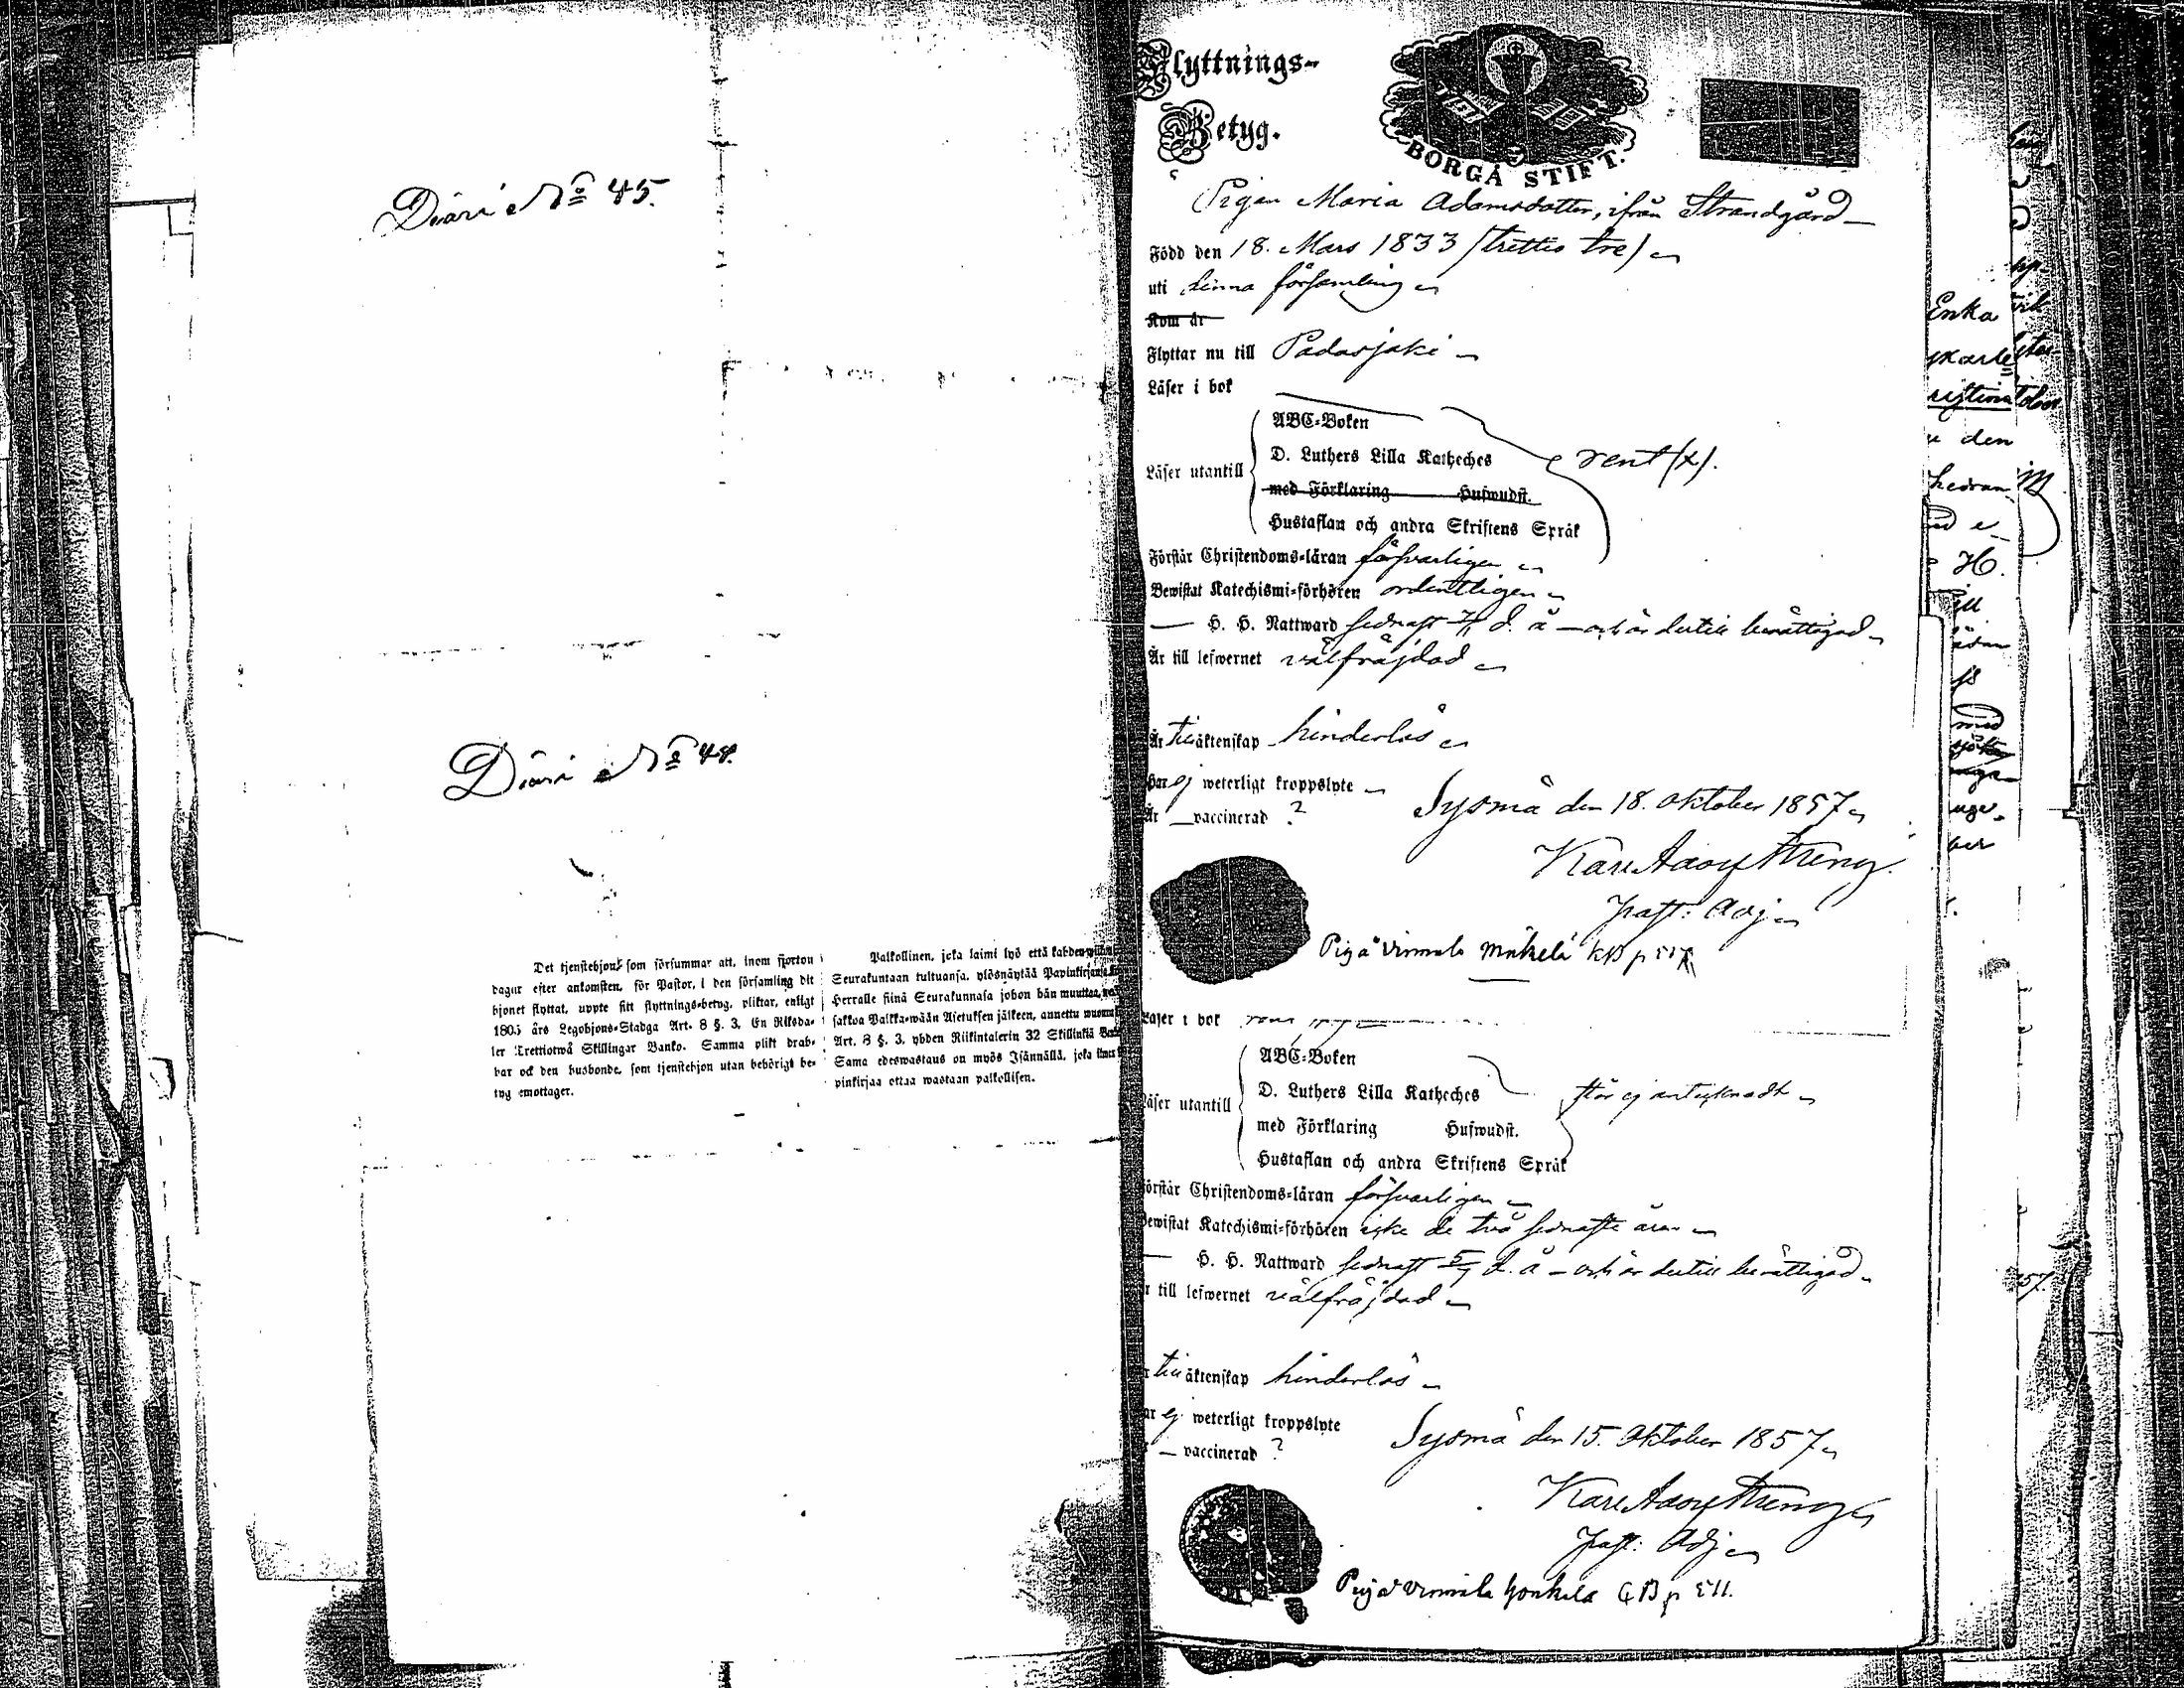 Diari No 45.
Diari No 48.
Det tjenstehjon som försummar att, inom fjorton
dagar efter ankomsten, för Pastor, i den församling dit
hjonet flyttat, uppte sitt flyttnings-betyg, pliktar, enligt
1805 års Legohjons-Stadga Art. 8 §. 3. En Riksda-
ler Trettiotwå Skillingar Banko. Samma plikt drab-
bar ock den husbonde, som tjenstehjon utan behörigt be-
tyg emottager.
Palkollinen, joka laimi lyö että kahden
Seurakuntaan tultuansa, ylösnäytää Papinkirjansa
Herralle siinä Seurakunnasa johon hän muuttaa,
sakkoa Palkka-wään Asetuksen jälkeen, annettu
Art. 8 §. 3. yhden Riikintalerin 32 Skillinkiä
Sama edeswastaus on myös Isännällä, joka
pinkirjaa ottaa wastaan palkollisen.
Flyttnings-
Betyg.
BORGÅ STIFT.
Pigan Maria Adamsdotter, ifrån Strandgård
Född den 18. Mars 1833 (trettio tre)
uti denna församling
Kom år
Flyttar nu till Padasjoki
Läser i bok
ABC-Boken
D. Luthers Lilla Katheches rent (x).
Läser utantill
med Förklaring Hufwudst.
Hustaflan och andra Skriftens Språk
Förstår Christendoms-läran försvarligen
Bewistat Katechismi-förhören ordentligen
H. H. Nattward sednast d. å och är dertill berättigad
Är till lefwernet välfräjdad
Är till äktenskap hinderlös
Har ej weterligt kroppslyte
Är vaccinerad ?
Sysmä den 18. Oktober 1857
Karl Adolf Streng
Past: Adj
Piga Virmala Mäkelä KB p
Läser i bok
ABC-Boken
D. Luthers Lilla Katheches står ej antecknadt
Läser utantill
med Förklaring Hufwudst.
Hustaflan och andra Skriftens Språk
Förstår Christendoms-läran försvarligen
Bewistat Katechismi-förhören icke de två sednaste åren
H. H. Nattward sednast d. å och är dertill berättigad
r till lefwernet välfräjdad
r till äktenskap hinderlös
ar ej weterligt kroppslyte
vaccinerad ?
Sysmä den 15. Oktober 1857
Karl Adolf Streng
Past: Adj
Piga Virmaila Honkela
Enka
den
57.